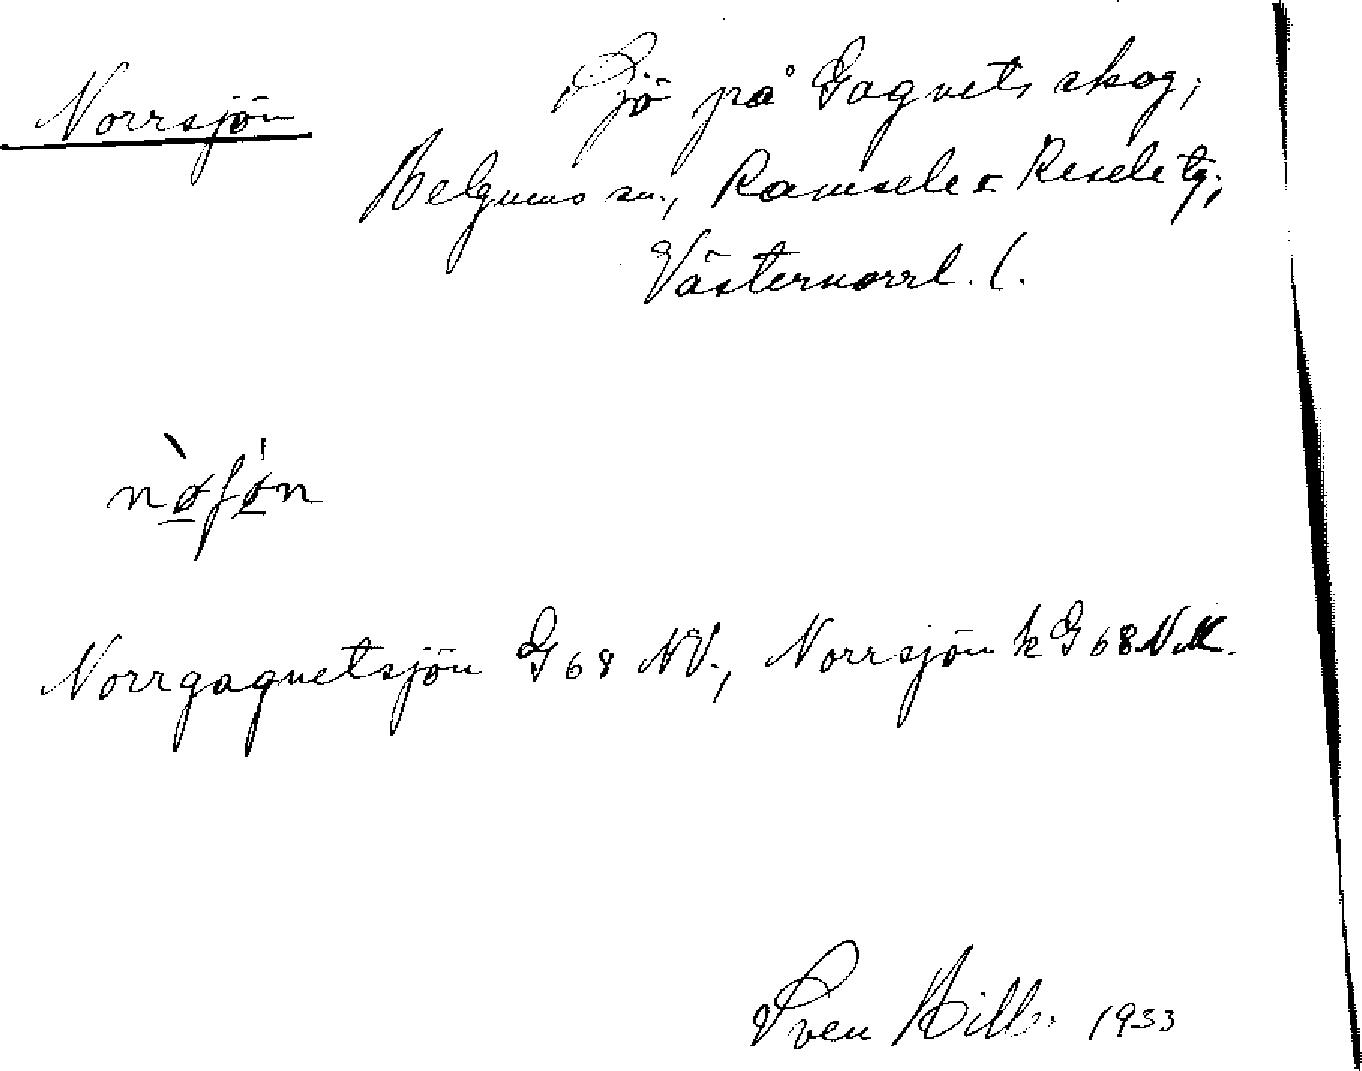 Norrsjön
Sjö på Gagnets skog,
Helgums sn., Ramsele o Resele tg,
Västernorrl. l.
nøʃøn
Norrgagnetsjön G 68 NV., Norrsjön k G 68 NV.
Sven Hillbo 1933